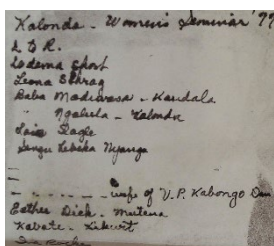 Kalonda - Women's Seminar '77
L to R.
Lodema Short
Leona Schrag
Baba Madivasa - Kandala
" Ngalula - Kalonda
Lois Slagle
Sengu Lebeka Nyanga
=
- - - - - - wife of V.P. Kabongo
Esther Dick - Mutena
Kabate - Kikwit